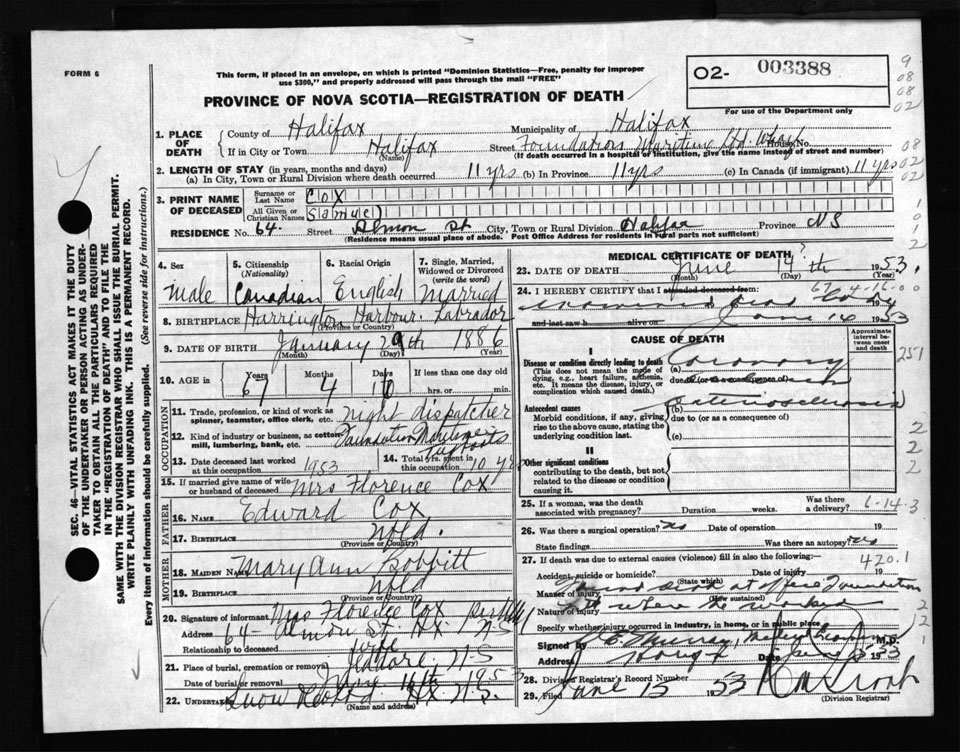 FORM 6
This form, if placed in an envelope, on which is printed "Dominion Statistics—Free, penalty for improper
use $300," and properly addressed will pass through the mail "FREE"
PROVINCE OF NOVA SCOTIA—REGISTRATION OF DEATH
O2- 003388
For use of the Department only
9
08
08
02
1. PLACE OF DEATH
County of Halifax Municipality of Halifax
If in City or Town Halifax Street Foundation Maritime Ltd. Wharf House No.
(Name) (If death occurred in a hospital or institution, give the name instead of street and number)
08
02
02
2. LENGTH OF STAY (in years, months and days)
(a) In City, Town or Rural Division where death occurred 11 yrs (b) In Province 11 yrs (c) In Canada (if immigrant) 11 yrs
3. PRINT NAME OF DECEASED
Surname or Last Name COX
All Given or Christian Names Samuel
RESIDENCE No. 64 Street Almon St. City, Town or Rural Division Halifax Province NS
(Residence means usual place of abode. Post Office Address for residents in rural parts not sufficient)
1
0
1
2
4. Sex
Male
5. Citizenship
(Nationality)
Canadian
6. Racial Origin
English
7. Single, Married, Widowed or Divorced
(write the word)
Married
8. BIRTHPLACE Harrington Harbour. Labrador
(Province or Country)
9. DATE OF BIRTH January 29th 1886
(Month) (Day) (Year)
10. AGE in Years Months Days If less than one day old
67 4 hrs. or min.
OCCUPATION
11. Trade, profession, or kind of work as
spinner, teamster, office clerk, etc. night dispatcher
12. Kind of industry or business, as cotton
mill, lumbering, bank, etc. Foundation Maritime
13. Date deceased last worked
at this occupation 1953
14. Total yrs. spent in
this occupation 10 yrs
15. If married give name of wife
or husband of deceased Mrs Florence Cox
FATHER
16. NAME Edward Cox
17. BIRTHPLACE Nfld.
(Province or Country)
MOTHER
18. MAIDEN NAME Mary Ann Bobbitt
19. BIRTHPLACE Nfld
(Province or Country)
20. Signature of informant Mrs Florence Cox
Address 64 - Almon St. Hx N-S
Relationship to deceased wife
21. Place of burial, cremation or removal N-S
Date of burial or removal 16th 1953
22. UNDERTAKER Snow Hx N.S.
(Name and address)
MEDICAL CERTIFICATE OF DEATH
23. DATE OF DEATH June 14th ? 1953.
(Month) (Day)
24. I HEREBY CERTIFY that I attended deceased from:
67 4-16-00
and last saw h alive on June 14 1953
CAUSE OF DEATH
Approximate interval between onset and death
I
Disease or condition directly leading to death
(This does not mean the mode of dying, e.g., heart failure, asthenia, etc. It means the disease, injury, or complication which caused death.)
(a) Coronary
due to (or as a consequence of)
251
Antecedent causes
Morbid conditions, if any, giving rise to the above cause, stating the underlying condition last.
(b) arteriosclerosis
due to (or as a consequence of)
(c)
2
2
2
II
Other significant conditions
contributing to the death, but not related to the disease or condition causing it.
25. If a woman, was the death
associated with pregnancy? Duration weeks. Was there a delivery?
6-14-3
26. Was there a surgical operation? no Date of operation 19
State findings Was there an autopsy? no
27. If death was due to external causes (violence) fill in also the following:
420.1
Accident, suicide or homicide? Date of injury 19
(State which)
Manner of injury Found dead at office Foundation
(How sustained)
Nature of injury where he worked
Specify whether injury occurred in industry, in home, or in public place
2
2
1
Signed by Murray, M.D.
Address Date 1953
28. Division Registrar's Record Number
29. Filed June 15 1953
(Division Registrar)
SEC. 46—VITAL STATISTICS ACT MAKES IT THE DUTY
OF THE UNDERTAKER OR PERSON ACTING AS UNDER-
TAKER TO OBTAIN ALL THE PARTICULARS REQUIRED
IN THE "REGISTRATION OF DEATH" AND TO FILE THE
SAME WITH THE DIVISION REGISTRAR WHO SHALL ISSUE THE BURIAL PERMIT.
WRITE PLAINLY WITH UNFADING INK. THIS IS A PERMANENT RECORD.
Every item of information should be carefully supplied. (See reverse side for instructions.)